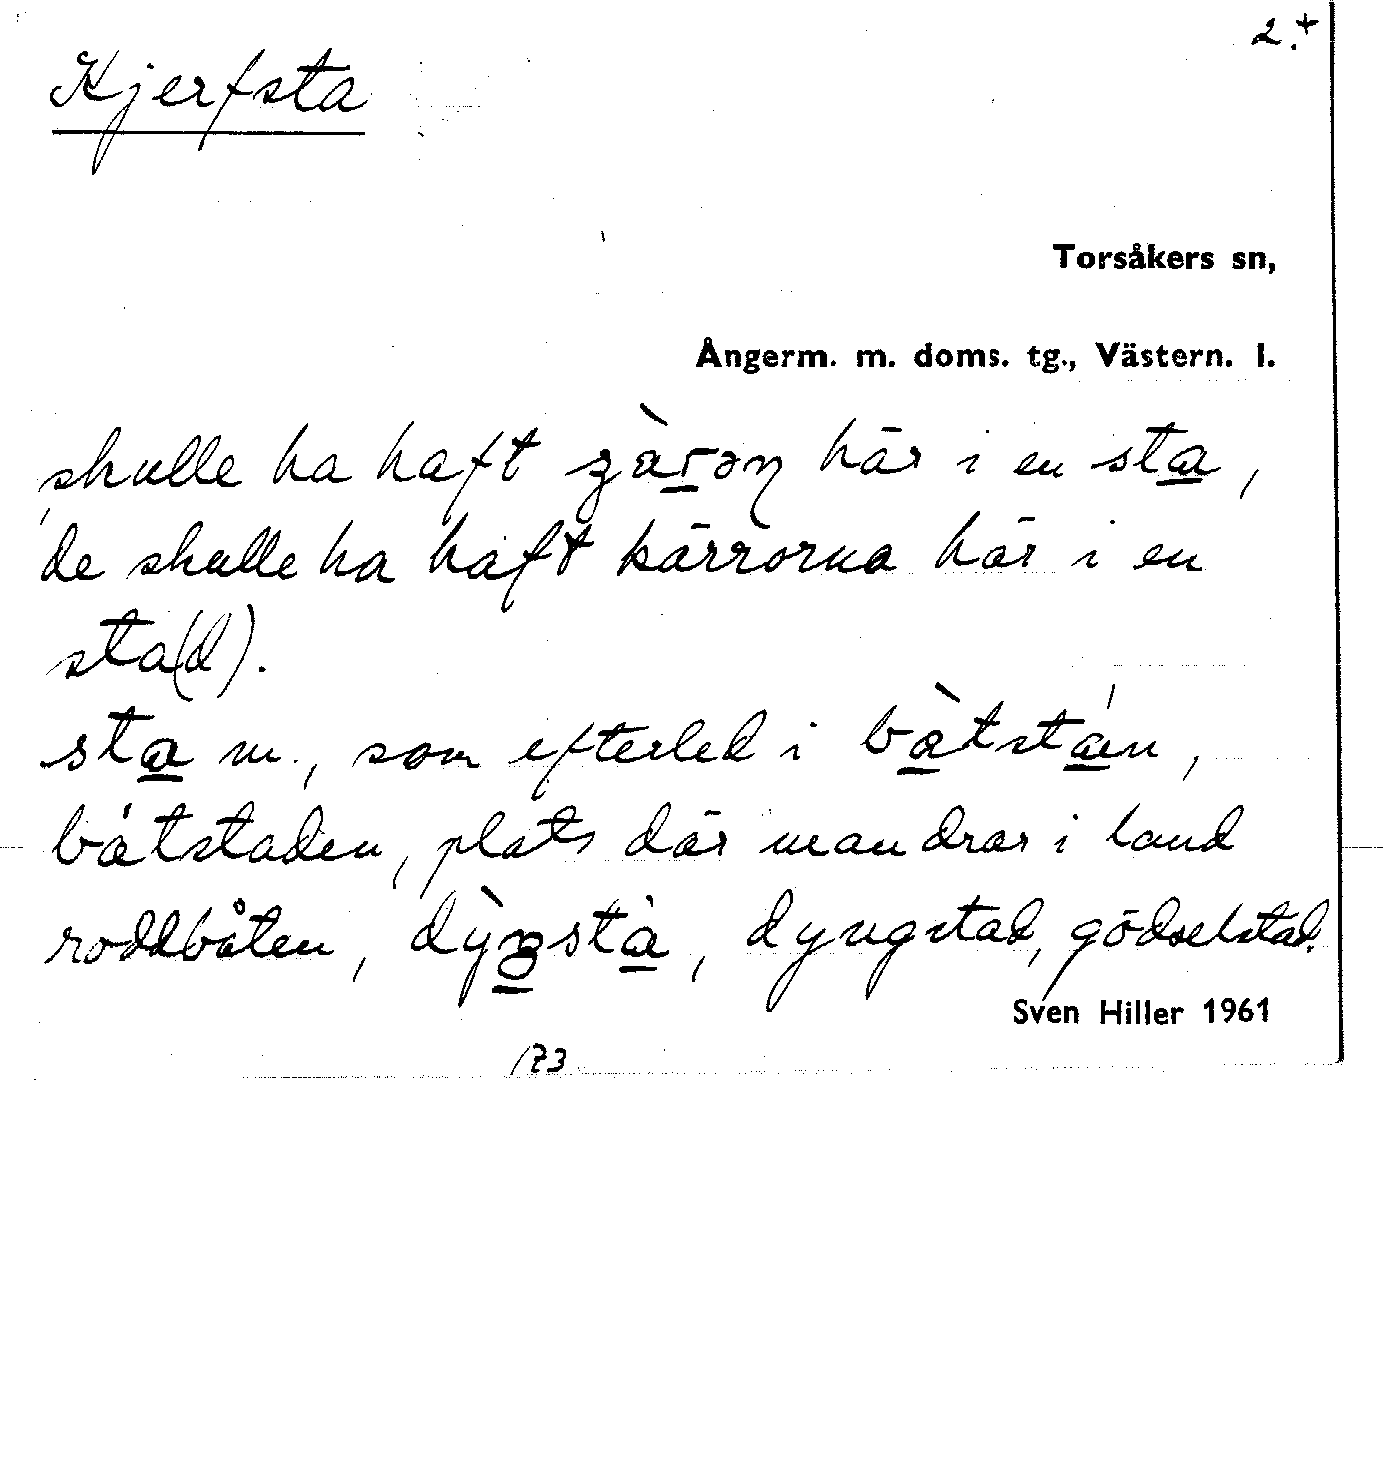 2.+
Kjerfsta
Torsåkers sn,
Ångerm. m. doms. tg., Västern. l.
skulle ha haft här i en sta,
de skulle ha haft kärrorna här i en
sta(d).
sta m., som efterled i båtstán,
båtstaden, plats där man drar i land
roddbåten, dyngstad, gödselstad.
Sven Hiller 1961
173